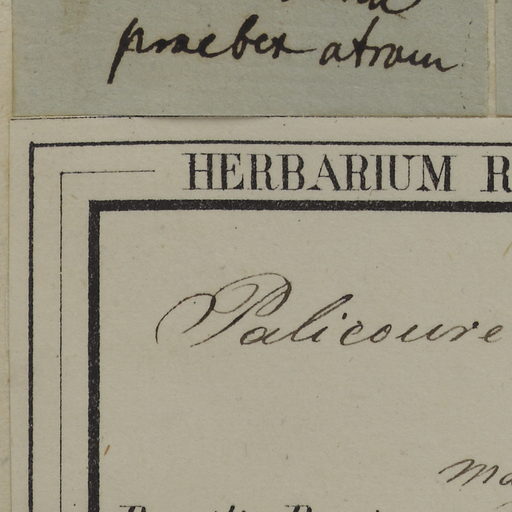 praebet atram
HERBARIUM R
Palicoure
ma